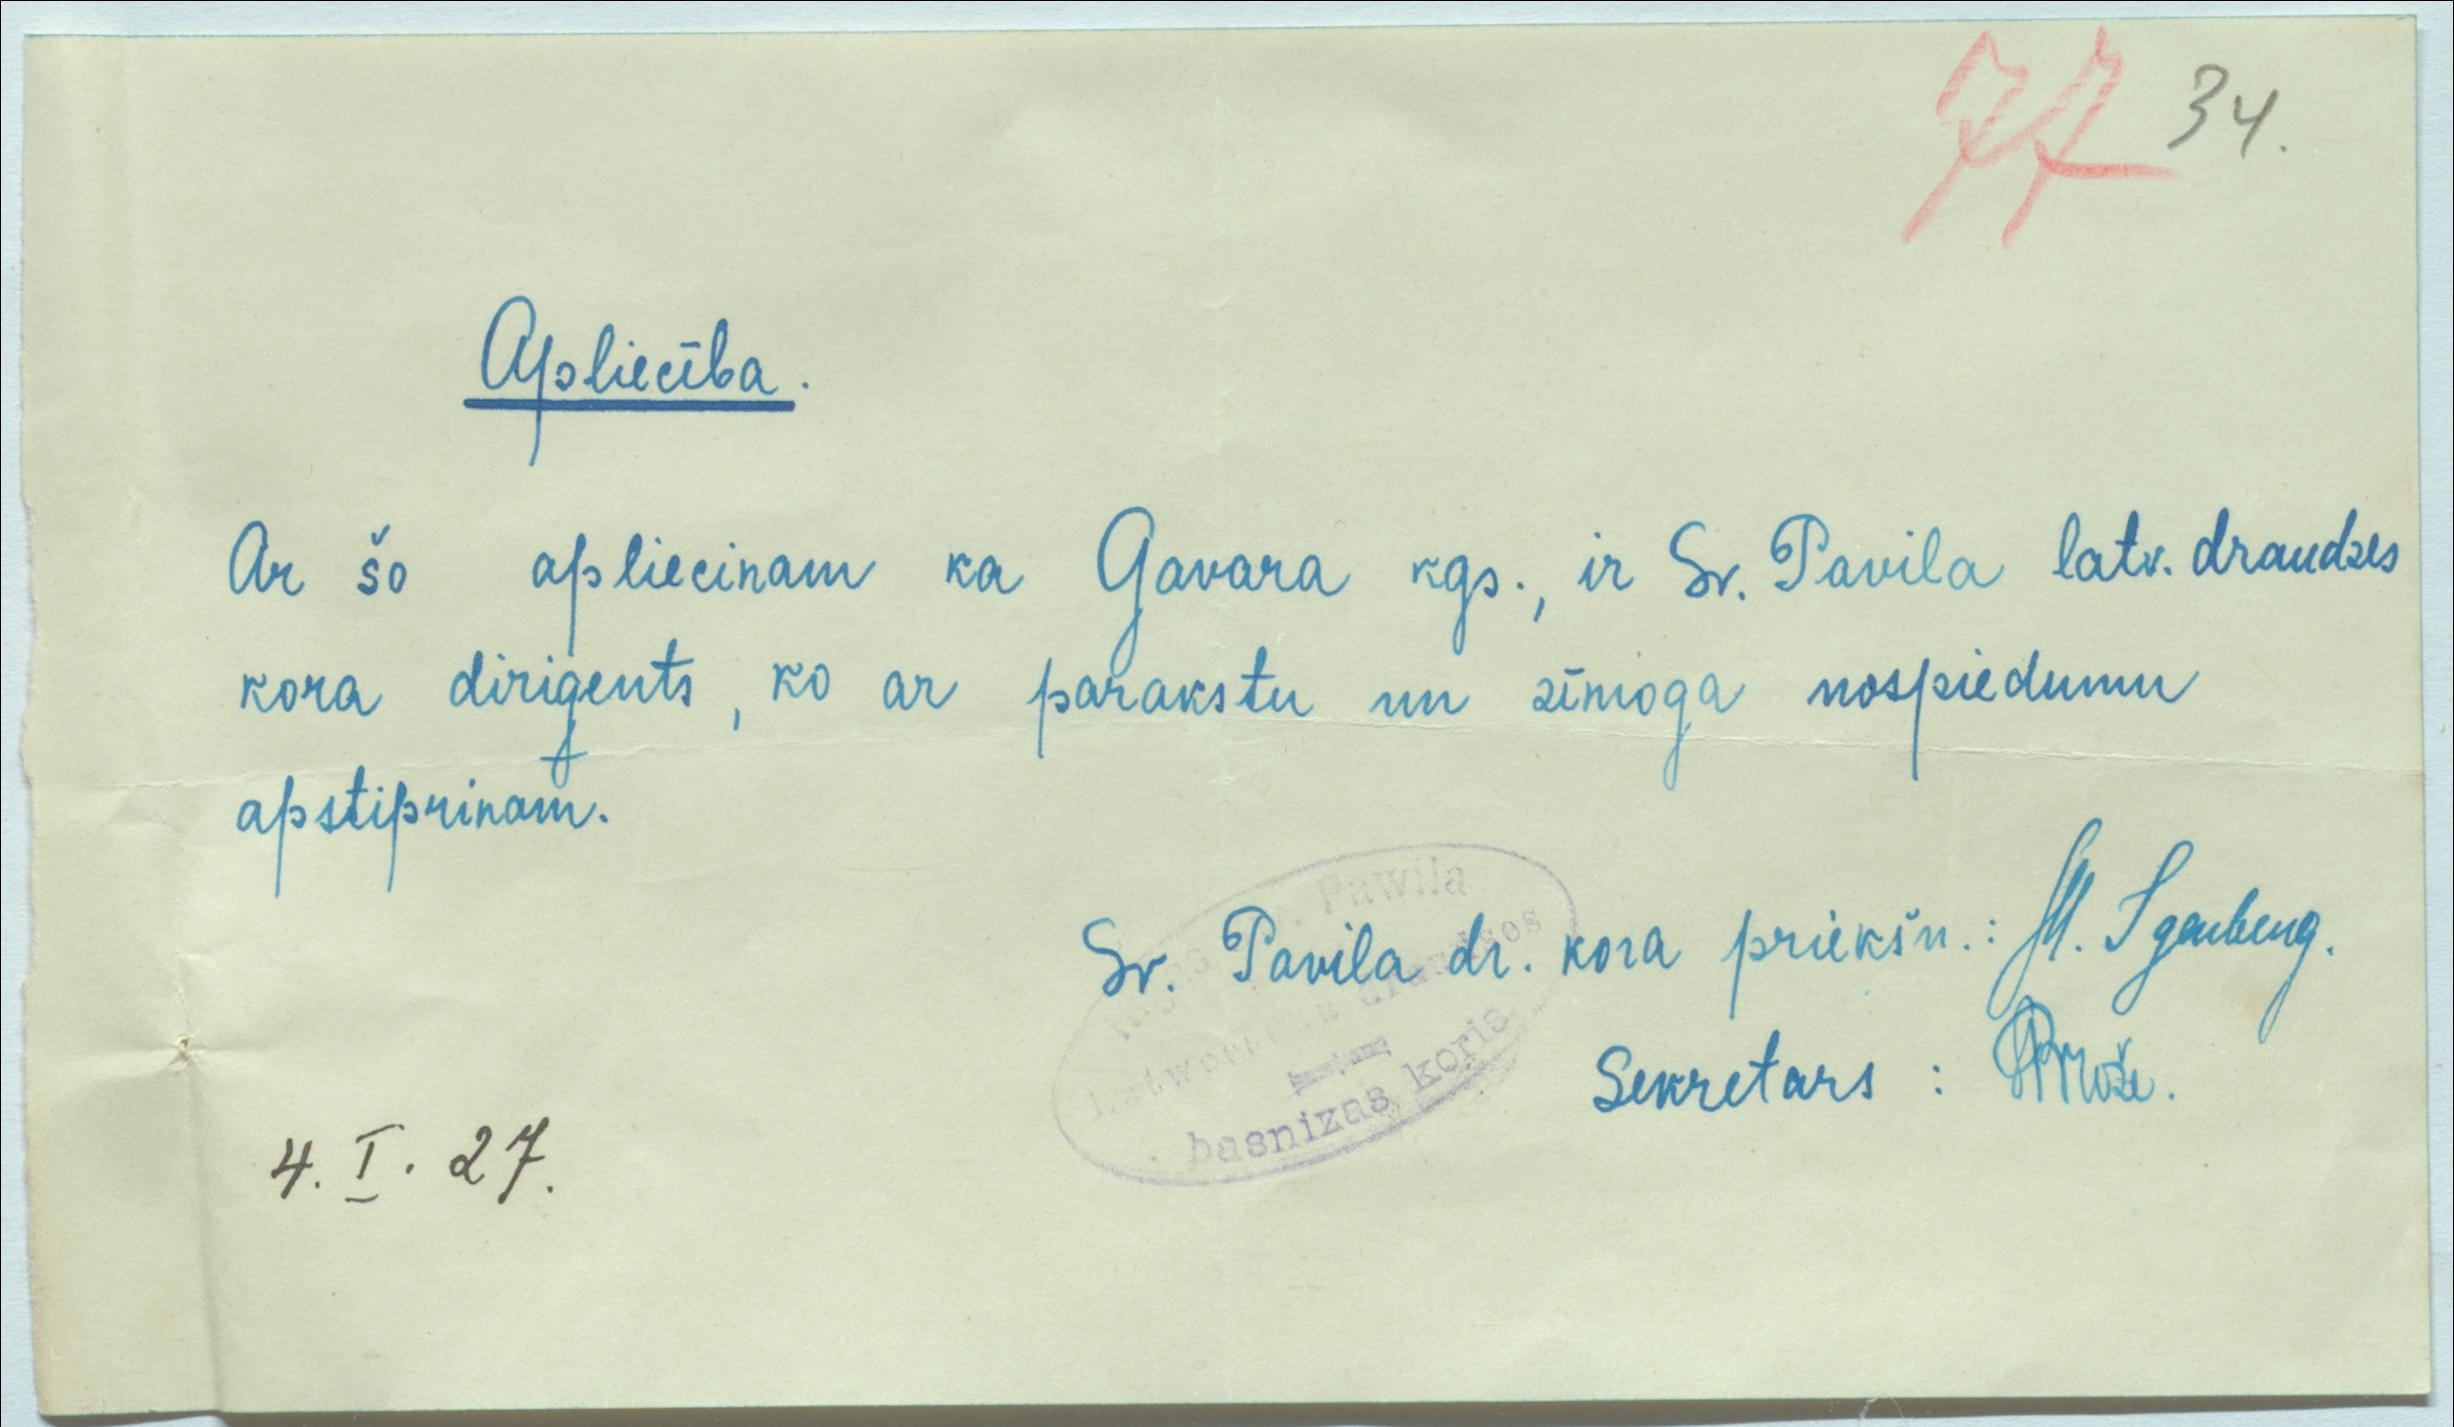 77 34.
Apliecība.
Ar šo apliecinam ka Gavara kgs., ir Sv. Pavila latv. draudzes
kora dirigents, ko ar parakstu un zīmoga nospiedumu
apstiprinam.
Pawila
basnizas koris
Sv. Pavila dr. kora priekšn.: M.
Sekretars :
4. I. 27.